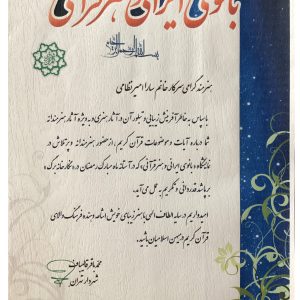 بانوی ایرانی هنر قرآنی
بسم الله الرحمن الرحیم
هنرمند گرامی سرکار خانم سارا امیر نظامی
با سپاس به خاطر آفرینش زیبایی و تبلور آن در آثار هنری و به ویژه آثار هنرمندانه
شما درباره آیات و موضوعات قرآن کریم، از حضور هنرمندانه و پرتلاش در
نمایشگاه «بانوی ایرانی و هنر قرآنی» که در آستانه ماه مبارک رمضان در نگارخانه برگ،
برپا شد قدردانی و تکریم به عمل می‌آید.
امیدواریم در سایه الطاف الهی با هنر زیبای خویش اشاعه دهنده فرهنگ والای
قرآن کریم در میهن اسلامیمان باشید.
محمد باقر قالیباف
شهردار تهران